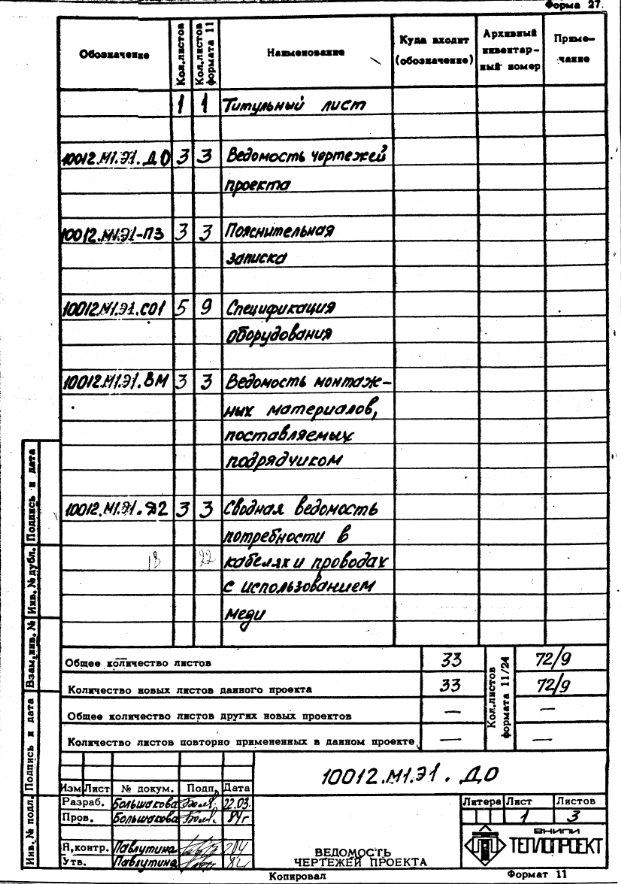 Форма 27.
Обозначение Кол.листов Кол.листов формата 11 Наименование Куда входит (обозначение) Архивный инвентарный номер Приме-чание
1 1 Титульный лист
10012.М1.Э1.ДО 3 3 Ведомость чертежей
проекта
10012.М1.Э1-ПЗ 3 3 Пояснительная
записка
10012.М1.Э1.СО1 5 9 Спецификация
оборудования
10012.М1.Э1.ВМ 3 3 Ведомость монтаж-
ных материалов,
поставляемых
подрядчиком
10012.М1.Э1.Э2 3 3 Сводная ведомость
потребности в
18 22 кабелях и проводах
с использованием
меди
Общее количество листов 33 Кол.листов формата 11/24 72/9
Количество новых листов данного проекта 33 72/9
Общее количество листов других новых проектов — —
Количество листов повторно примененных в данном проекте — —
Инв.№ подл. Подпись и дата Взам.инв.№ Инв.№ дубл. Подпись и дата
10012.М1.Э1.ДО
Изм Лист № докум. Подп. Дата
Разраб. Большакова 22.03.
Пров. Большакова 84г
Н.контр. Павлутина
Утв. Павлутина
ВЕДОМОСТЬ
ЧЕРТЕЖЕЙ ПРОЕКТА
Литера Лист Листов
1 3
ВНИПИ
ТЕПЛОПРОЕКТ
Копировал Формат 11